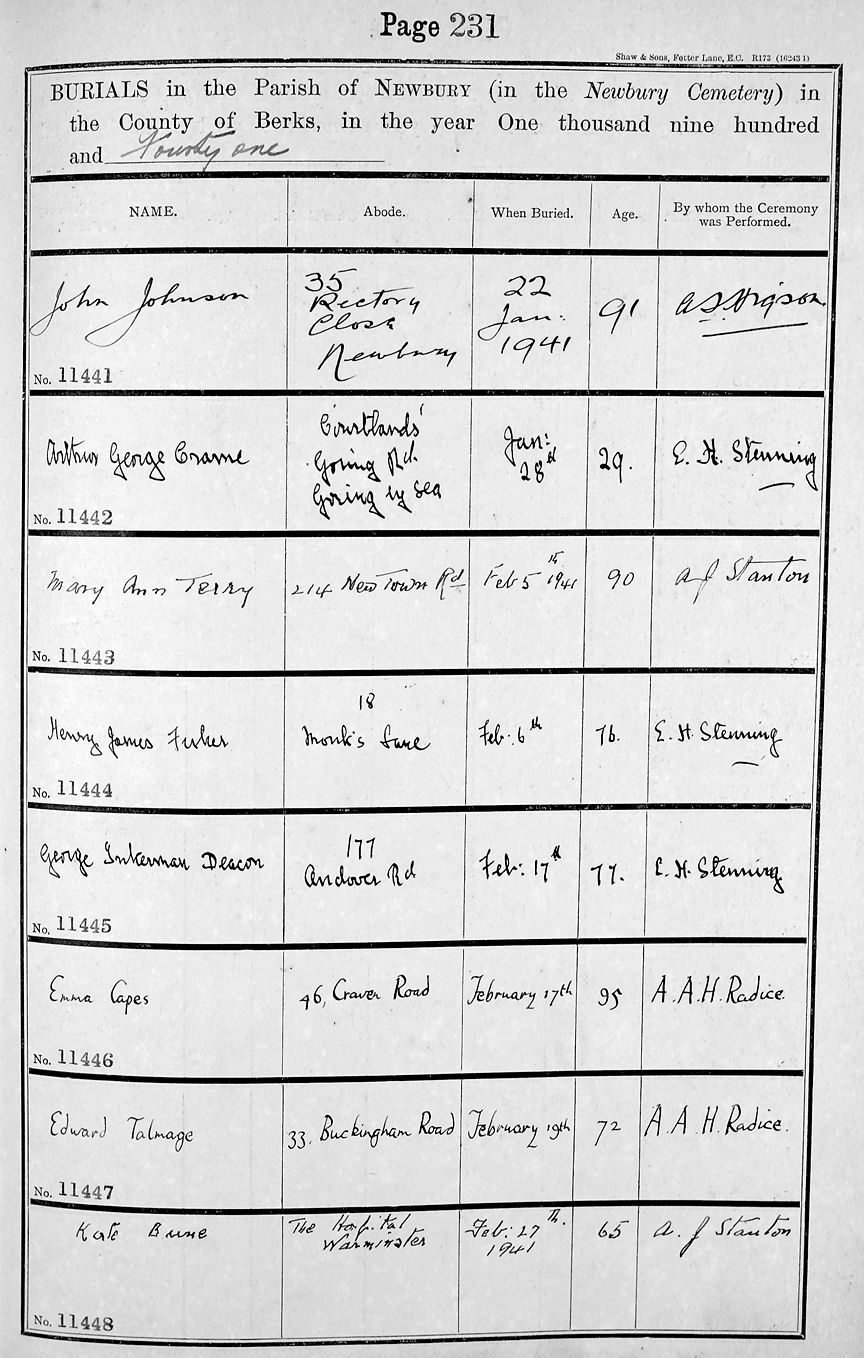 Page 231
Shaw & Sons, Fetter Lane, E.C. R173 (16243 1)
BURIALS in the Parish of NEWBURY (in the Newbury Cemetery) in
the County of Berks, in the year One thousand nine hundred
and Fourty one
NAME. Abode. When Buried. Age. By whom the Ceremony was Performed.
John Johnson
35
Rectory
Close
Newbury
22
Jan:
1941
91
No. 11441
Arthur George
Courtlands'
Goring Rd.
Goring by Sea
Jan:
28th
29.
E. H. Stenning
No. 11442
Mary Ann Terry 214 New Town Rd Feb 5th 1941 90 A J Stanton
No. 11443
18
Henry James Fisher Monk's Lane Feb: 6th 76. E. H. Stenning
No. 11444
177
George Inkerman Deacon Andover Rd Feb: 17th 77. E. H. Stenning
No. 11445
Emma Capes 46, Craven Road February 17th 95 A. A. H. Radice.
No. 11446
Edward Talmage 33, Buckingham Road February 19th 72 A. A. H. Radice.
No. 11447
Kate The Hospital
Warminster
Feb: 27th.
1941
65 A. J Stanton
No. 11448